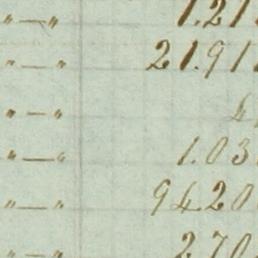 "—" 1.21
"—" 21.91
"—" 4
"—" 1.03
"—" 94.20
"—" 2.70